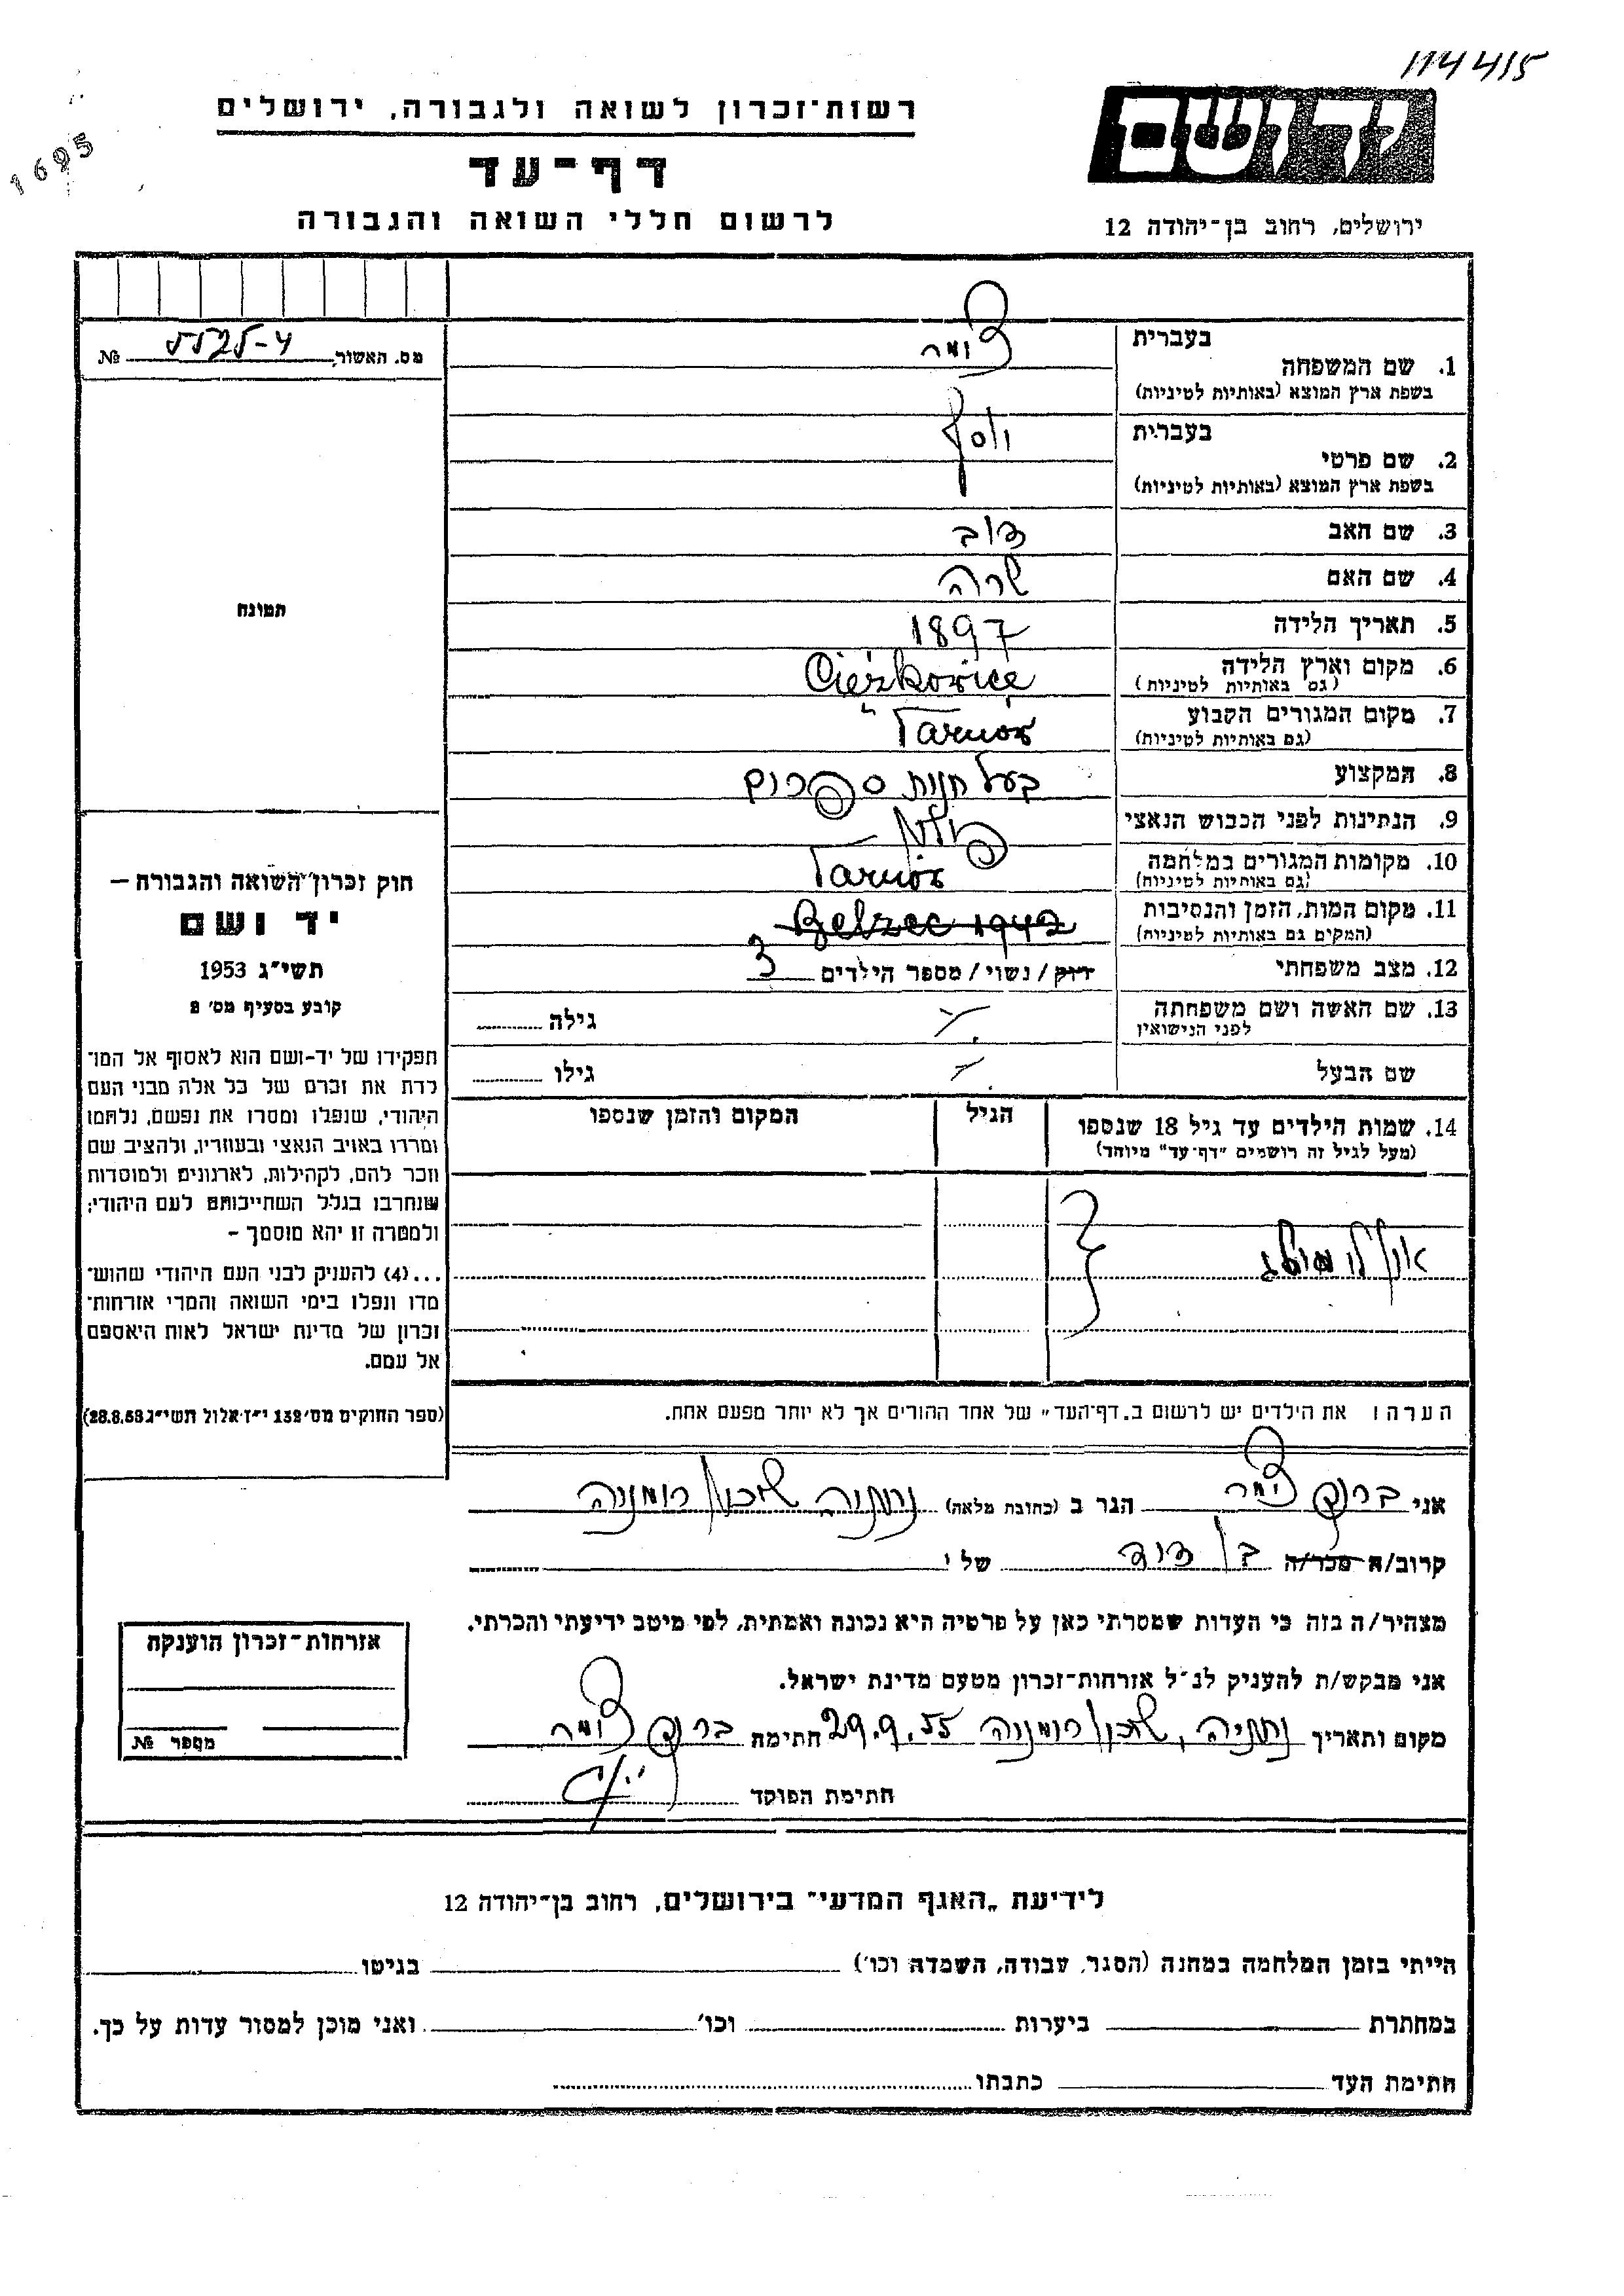 114415
רשות־זכרון לשואה ולגבורה, ירושלים
1695
דף־עד
לרשום חללי השואה והגבורה
יד ושם
ירושלים, רחוב בן־יהודה 12
מס. האשור №
1. שם המשפחה
בעברית
בשפת ארץ המוצא (באותיות לטיניות)
2. שם פרטי
בעברית
יוסף
בשפת ארץ המוצא (באותיות לטיניות)
3. שם האב
דוב
4. שם האם
שרה
5. תאריך הלידה
1897
6. מקום וארץ הלידה
(גם באותיות לטיניות)
Ciężkowice
7. מקום המגורים הקבוע
(גם באותיות לטיניות)
Tarnów
8. המקצוע
בעל חנות ספרים
9. הנתינות לפני הכבוש הנאצי
פולין
10. מקומות המגורים במלחמה
(גם באותיות לטיניות)
Tarnów
11. מקום המות, הזמן והנסיבות
(המקום גם באותיות לטיניות)
Belzec 1942
12. מצב משפחתי
רוק / נשוי / מספר הילדים 3
13. שם האשה ושם משפחתה
לפני הנישואין
גילה
שם הבעל
גילו
תמונה
חוק זכרון השואה והגבורה —
יד ושם
תשי״ג 1953
קובע בסעיף מס׳ 2
תפקידו של יד-ושם הוא לאסוף אל המו־
לדת את זכרם של כל אלה מבני העם
היהודי, שנפלו ומסרו את נפשם, נלחמו
ומרדו באויב הנאצי ובעוזריו, ולהציב שם
וזכר להם, לקהילות, לארגונים ולמוסדות
שנחרבו בגלל השתייכותם לעם היהודי;
ולמטרה זו יהא מוסמך —
...(4) להעניק לבני העם היהודי שהוש־
מדו ונפלו בימי השואה והמרי אזרחות־
זכרון של מדינת ישראל לאות היאספם
אל עמם.
(ספר החוקים מס׳ 132 י״ז אלול תשי״ג 28.8.53)
14. שמות הילדים עד גיל 18 שנספו
(מעל לגיל זה רושמים ״דף־עד״ מיוחד)
הגיל
המקום והזמן שנספו
אין לי מושג
הערה ! את הילדים יש לרשום ב„דף־העד״ של אחד ההורים אך לא יותר מפעם אחת.
אני ברוך הגר ב (כתובת מלאה) נתניה שכון רומניה
קרוב/ה מכר/ה בן דוד של י
מצהיר/ה בזה כי העדות שמסרתי כאן על פרטיה היא נכונה ואמתית, לפי מיטב ידיעתי והכרתי.
אני מבקש/ת להעניק לנ״ל אזרחות־זכרון מטעם מדינת ישראל.
מקום ותאריך נתניה, שכון רומניה 29.9.55 חתימה ברוך
חתימת הפוקד
אזרחות־זכרון הוענקה
מספר №
לידיעת „האגף המדעי״ בירושלים, רחוב בן־יהודה 12
הייתי בזמן המלחמה במחנה (הסגר, עבודה, השמדה וכו׳) בגיטו
במחתרת ביערות וכו׳ ואני מוכן למסור עדות על כך.
חתימת העד כתבתו